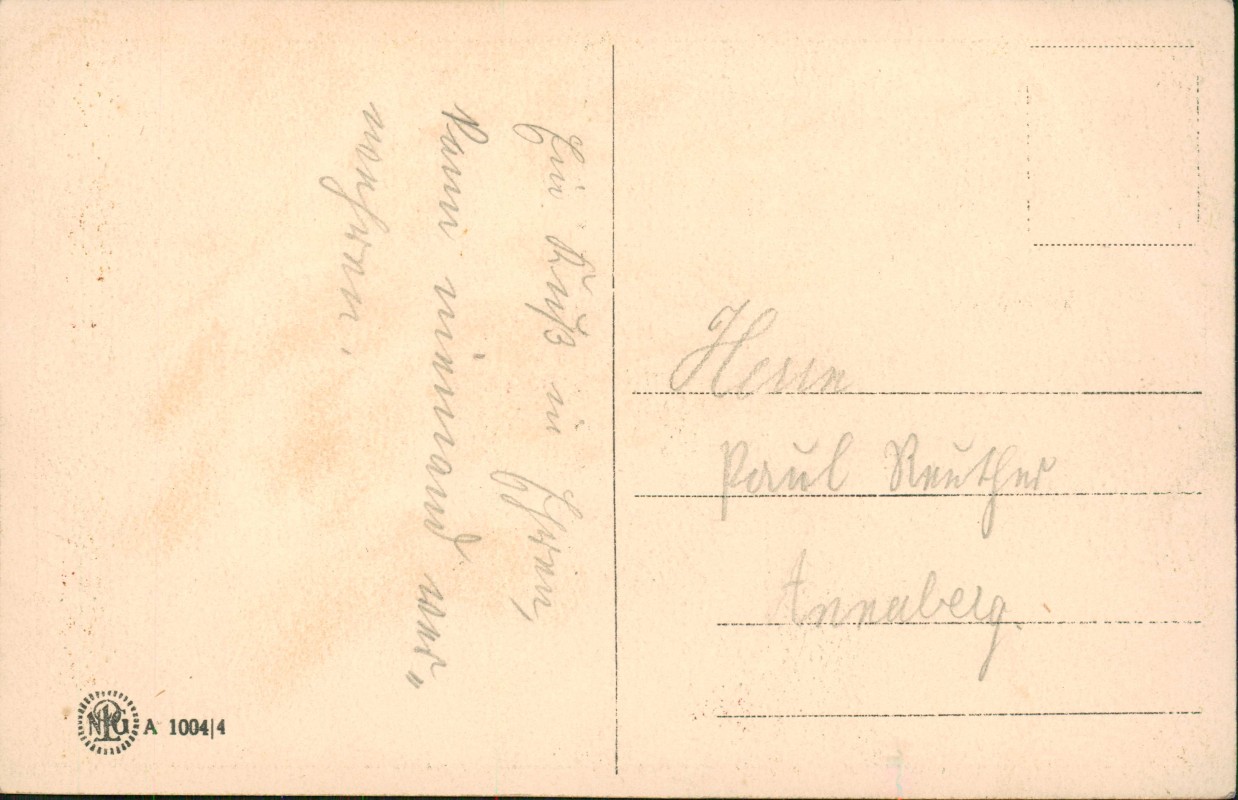 Ein Kuß in Ehren,
kann niemand ver„
wehren.
Herrn
Paul Reuther
Annaberg.
NPG A 1004|4